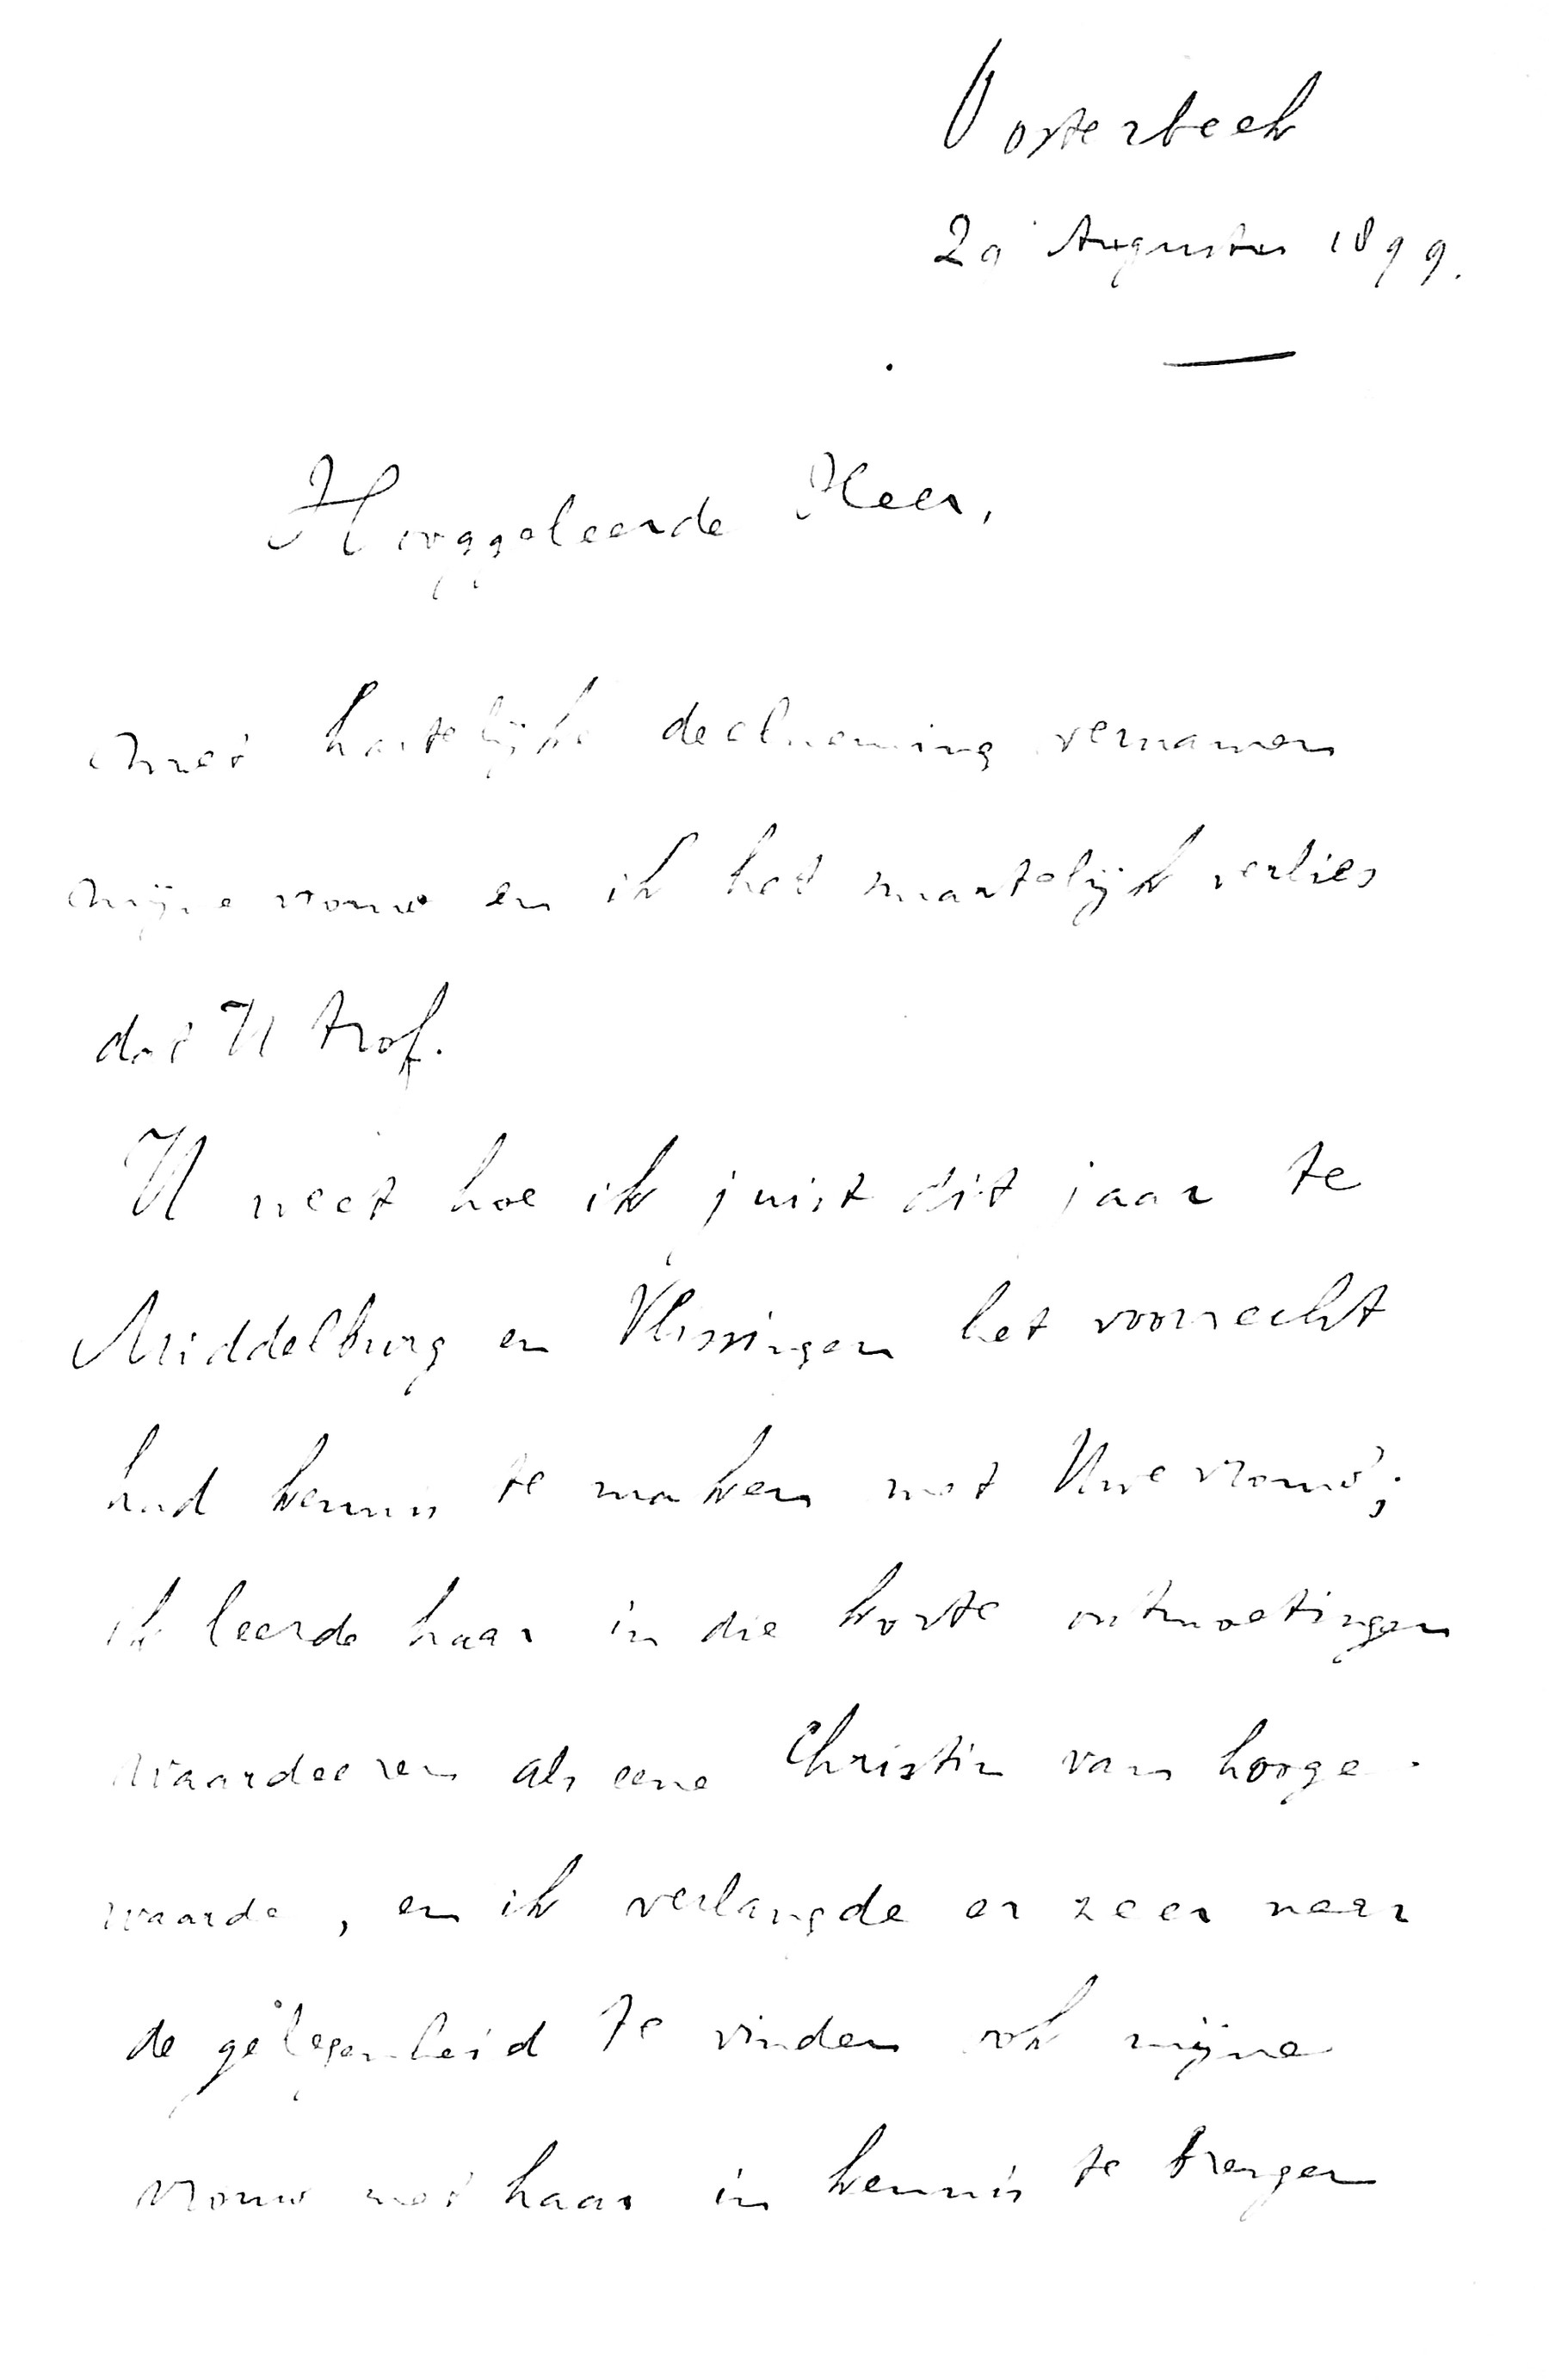 Oosterbeek
29 Augustus 1899.
Hooggeleerde Heer,
Met hartelijke deelneming vernamen
mijne vrouw en ik het smartelijk verlies
dat U trof.
U weet hoe ik juist dit jaar te
Middelburg en Vlissingen het voorrecht
had kennis te maken met Uwe vrouw;
ik leerde haar in die korte ontmoetingen
waardeeren als eene Christin van hooge
waarde, en ik verlangde er zeer naar
de gelegenheid te vinden ook mijne
vrouw met haar in kennis te brengen